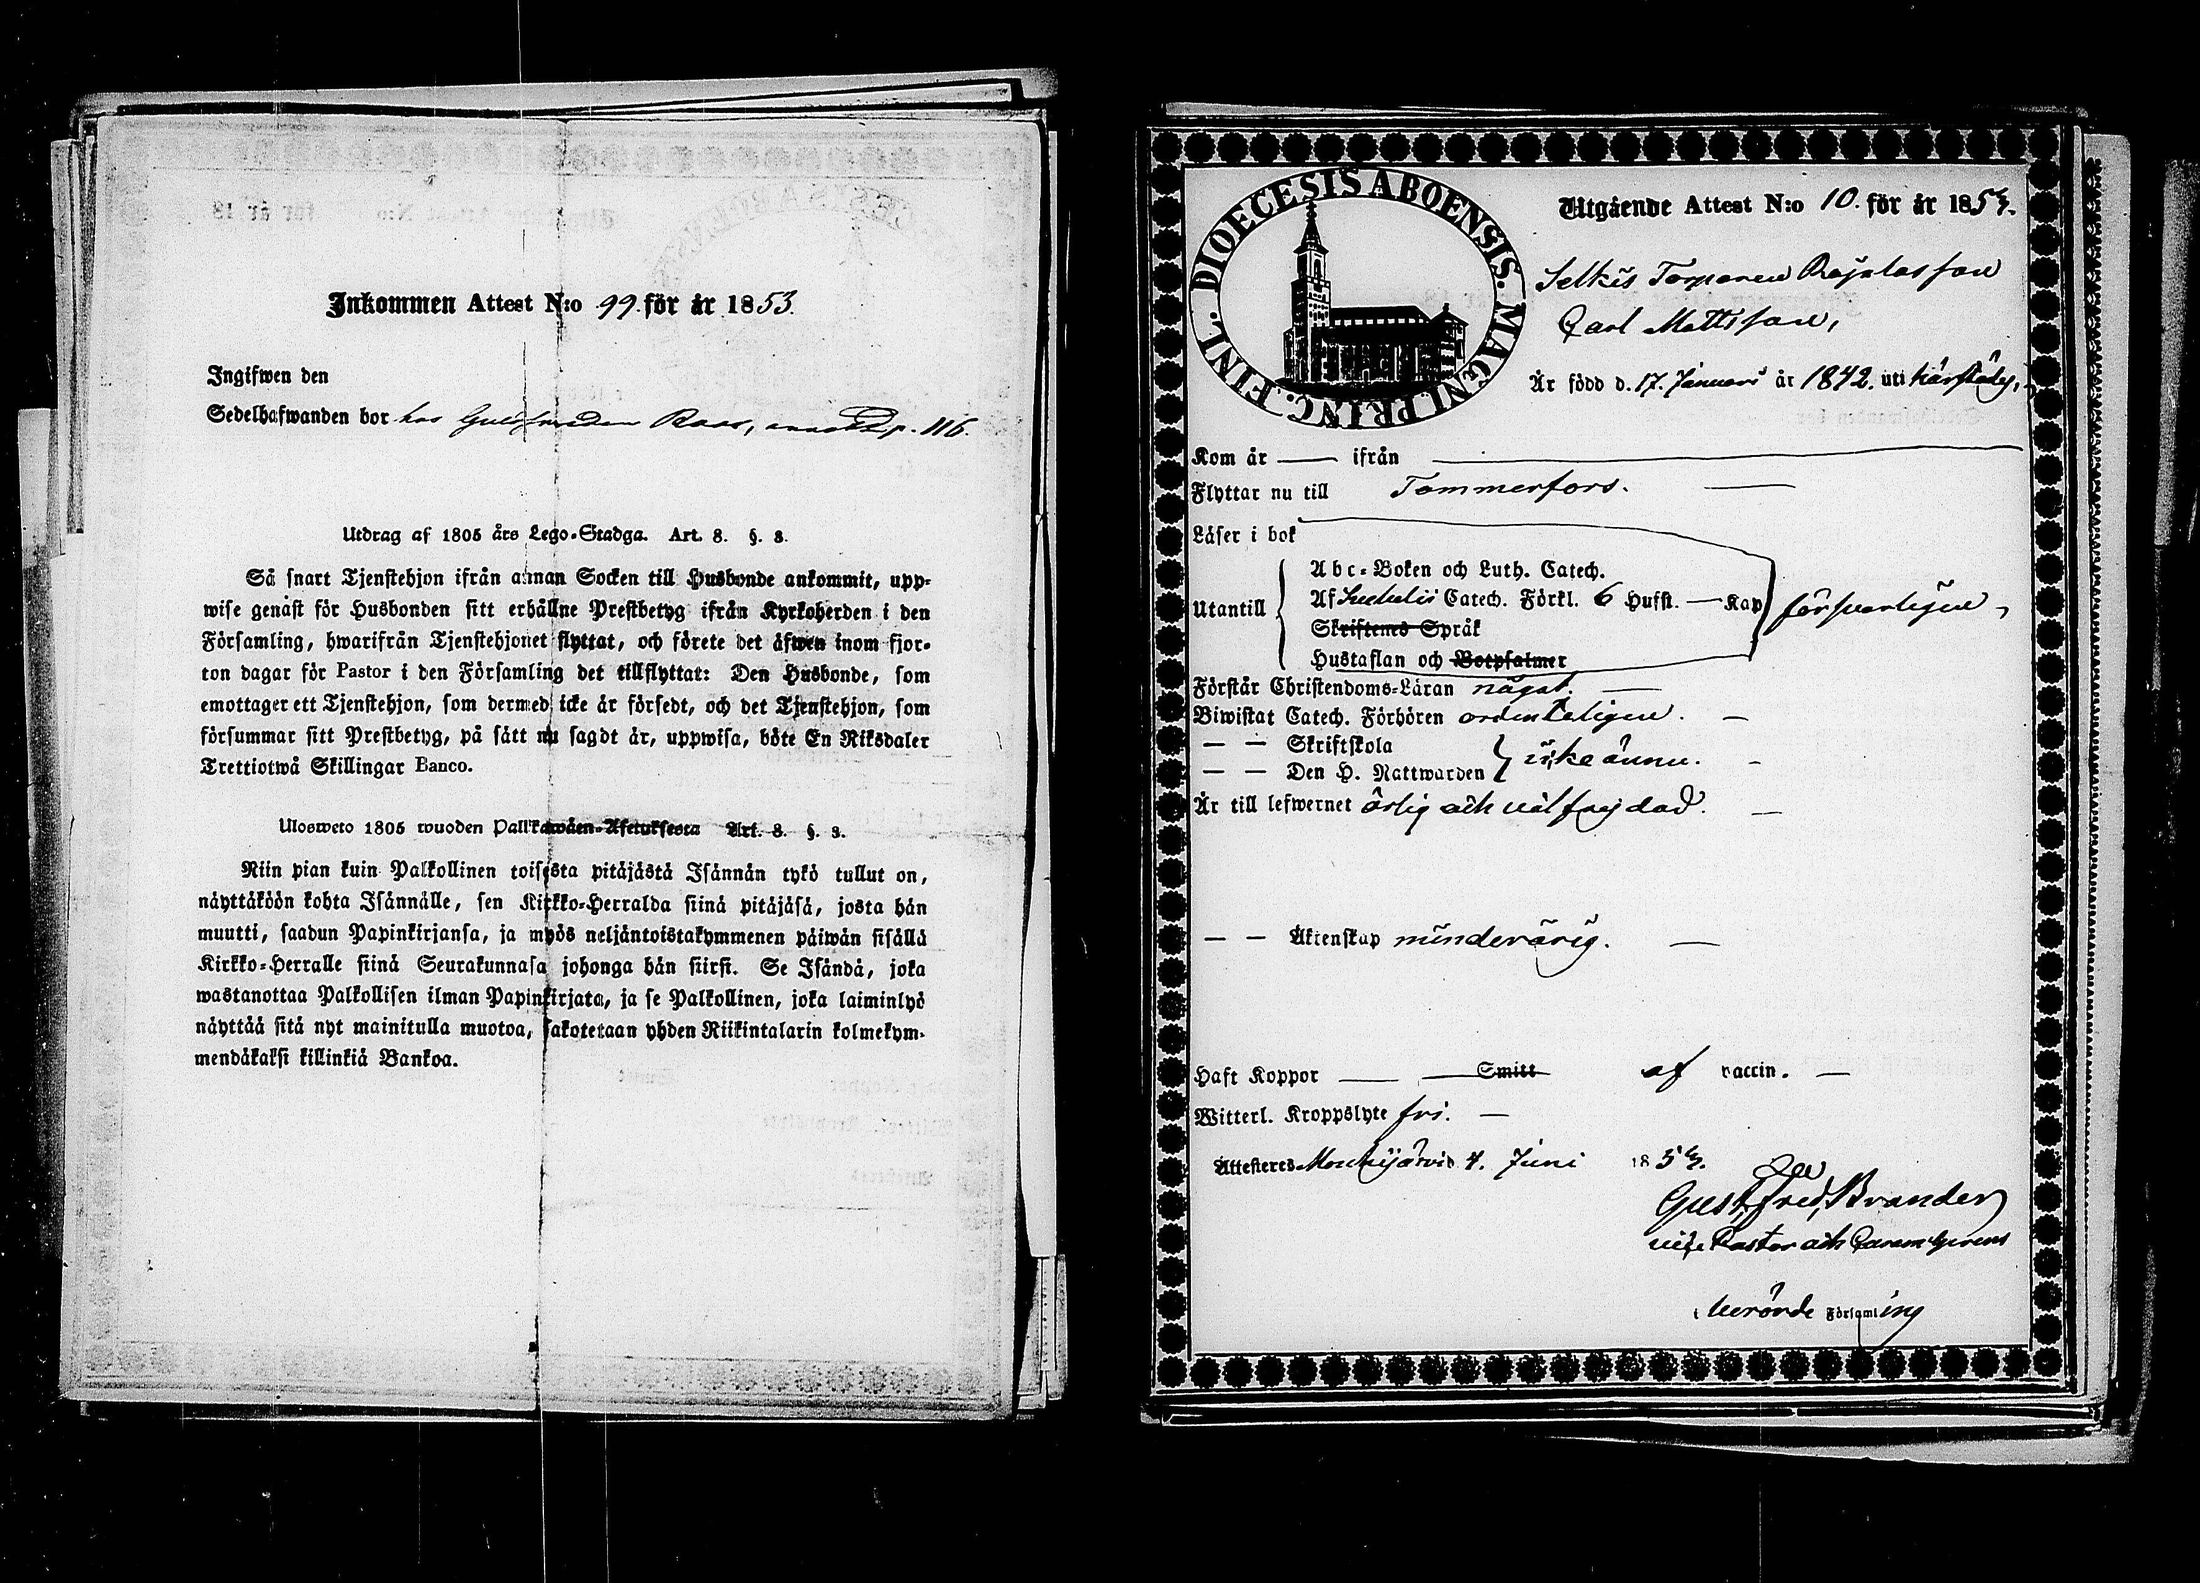 Inkommen Attest N:o 99. för år 1853.
Ingifwen den
Sedelhafwanden bor hos Guldsmeden Roos, p. 116.
Utdrag af 1805 års Lego-Stadga. Art. 8. §. 3.
Så snart Tjenstehjon ifrån annan Socken till Husbonde ankommit, upp-
wise genast för Husbonden sitt erhållne Prestbetyg ifrån Kyrkoherden i den
Församling, hwarifrån Tjenstehjonet flyttat, och förete det äfwen inom fjor-
ton dagar för Pastor i den Församling det tillflyttat: Den Husbonde, som
emottager ett Tjenstehjon, som dermed icke är försedt, och det Tjenstehjon, som
försummar sitt Prestbetyg, på sätt nu sagdt är, uppwisa, böte En Riksdaler
Trettiotwå Skillingar Banco.
Ulosweto 1805 wuoden Palkkawäen-Asetuksesta Art. 8. §. 3.
Niin pian kuin Palkollinen toisesta pitäjästä Isännän tykö tullut on,
näyttäköön kohta Isännälle, sen Kirkko-Herralda siinä pitäjäsä, josta hän
muutti, saadun Papinkirjansa, ja myös neljäntoistakymmenen päiwän sisällä
Kirkko-Herralle siinä Seurakunnasa johonga hän siirsi. Se Isändä, joka
wastanottaa Palkollisen ilman Papinkirjata, ja se Palkollinen, joka laiminlyö
näyttää sitä nyt mainitulla muotoa, sakotetaan yhden Riikintalarin kolmekym-
mendäkaksi killinkiä Bankoa.
FINL. DIOECESIS ABOENSIS. MAGNI. PRINC.
Utgående Attest N:o 10. för år 1853.
Selkis Torparen
Carl Mattsson,
Är född d. 17. Januari år 1842. uti härstädes,
Kom år — ifrån —
Flyttar nu till Tammerfors. —
Läser i bok
Abc-Boken och Luth. Catech.
Utantill Af Svebelii Catech. Förkl. 6 Hufst. — Kap försvarligen,
Skriftenes Språk
Hustaflan och Botpsalmer
Förstår Christendoms-Läran något. —
Biwistat Catech. Förhören ordenteligen. —
— — Skriftskola
— — Den H. Nattwarden icke ännu. —
Är till lefwernet ärlig och välfrejdad. —
— — Äktenskap minderårig. —
Haft Koppor — — Smitt af vaccin. —
Witterl. Kroppslyte fri. —
Attesteras Mouhijärvi d. 4. Juni 1853.
Gust. Fred. Brander
vice Pastor och
i berörde Församling